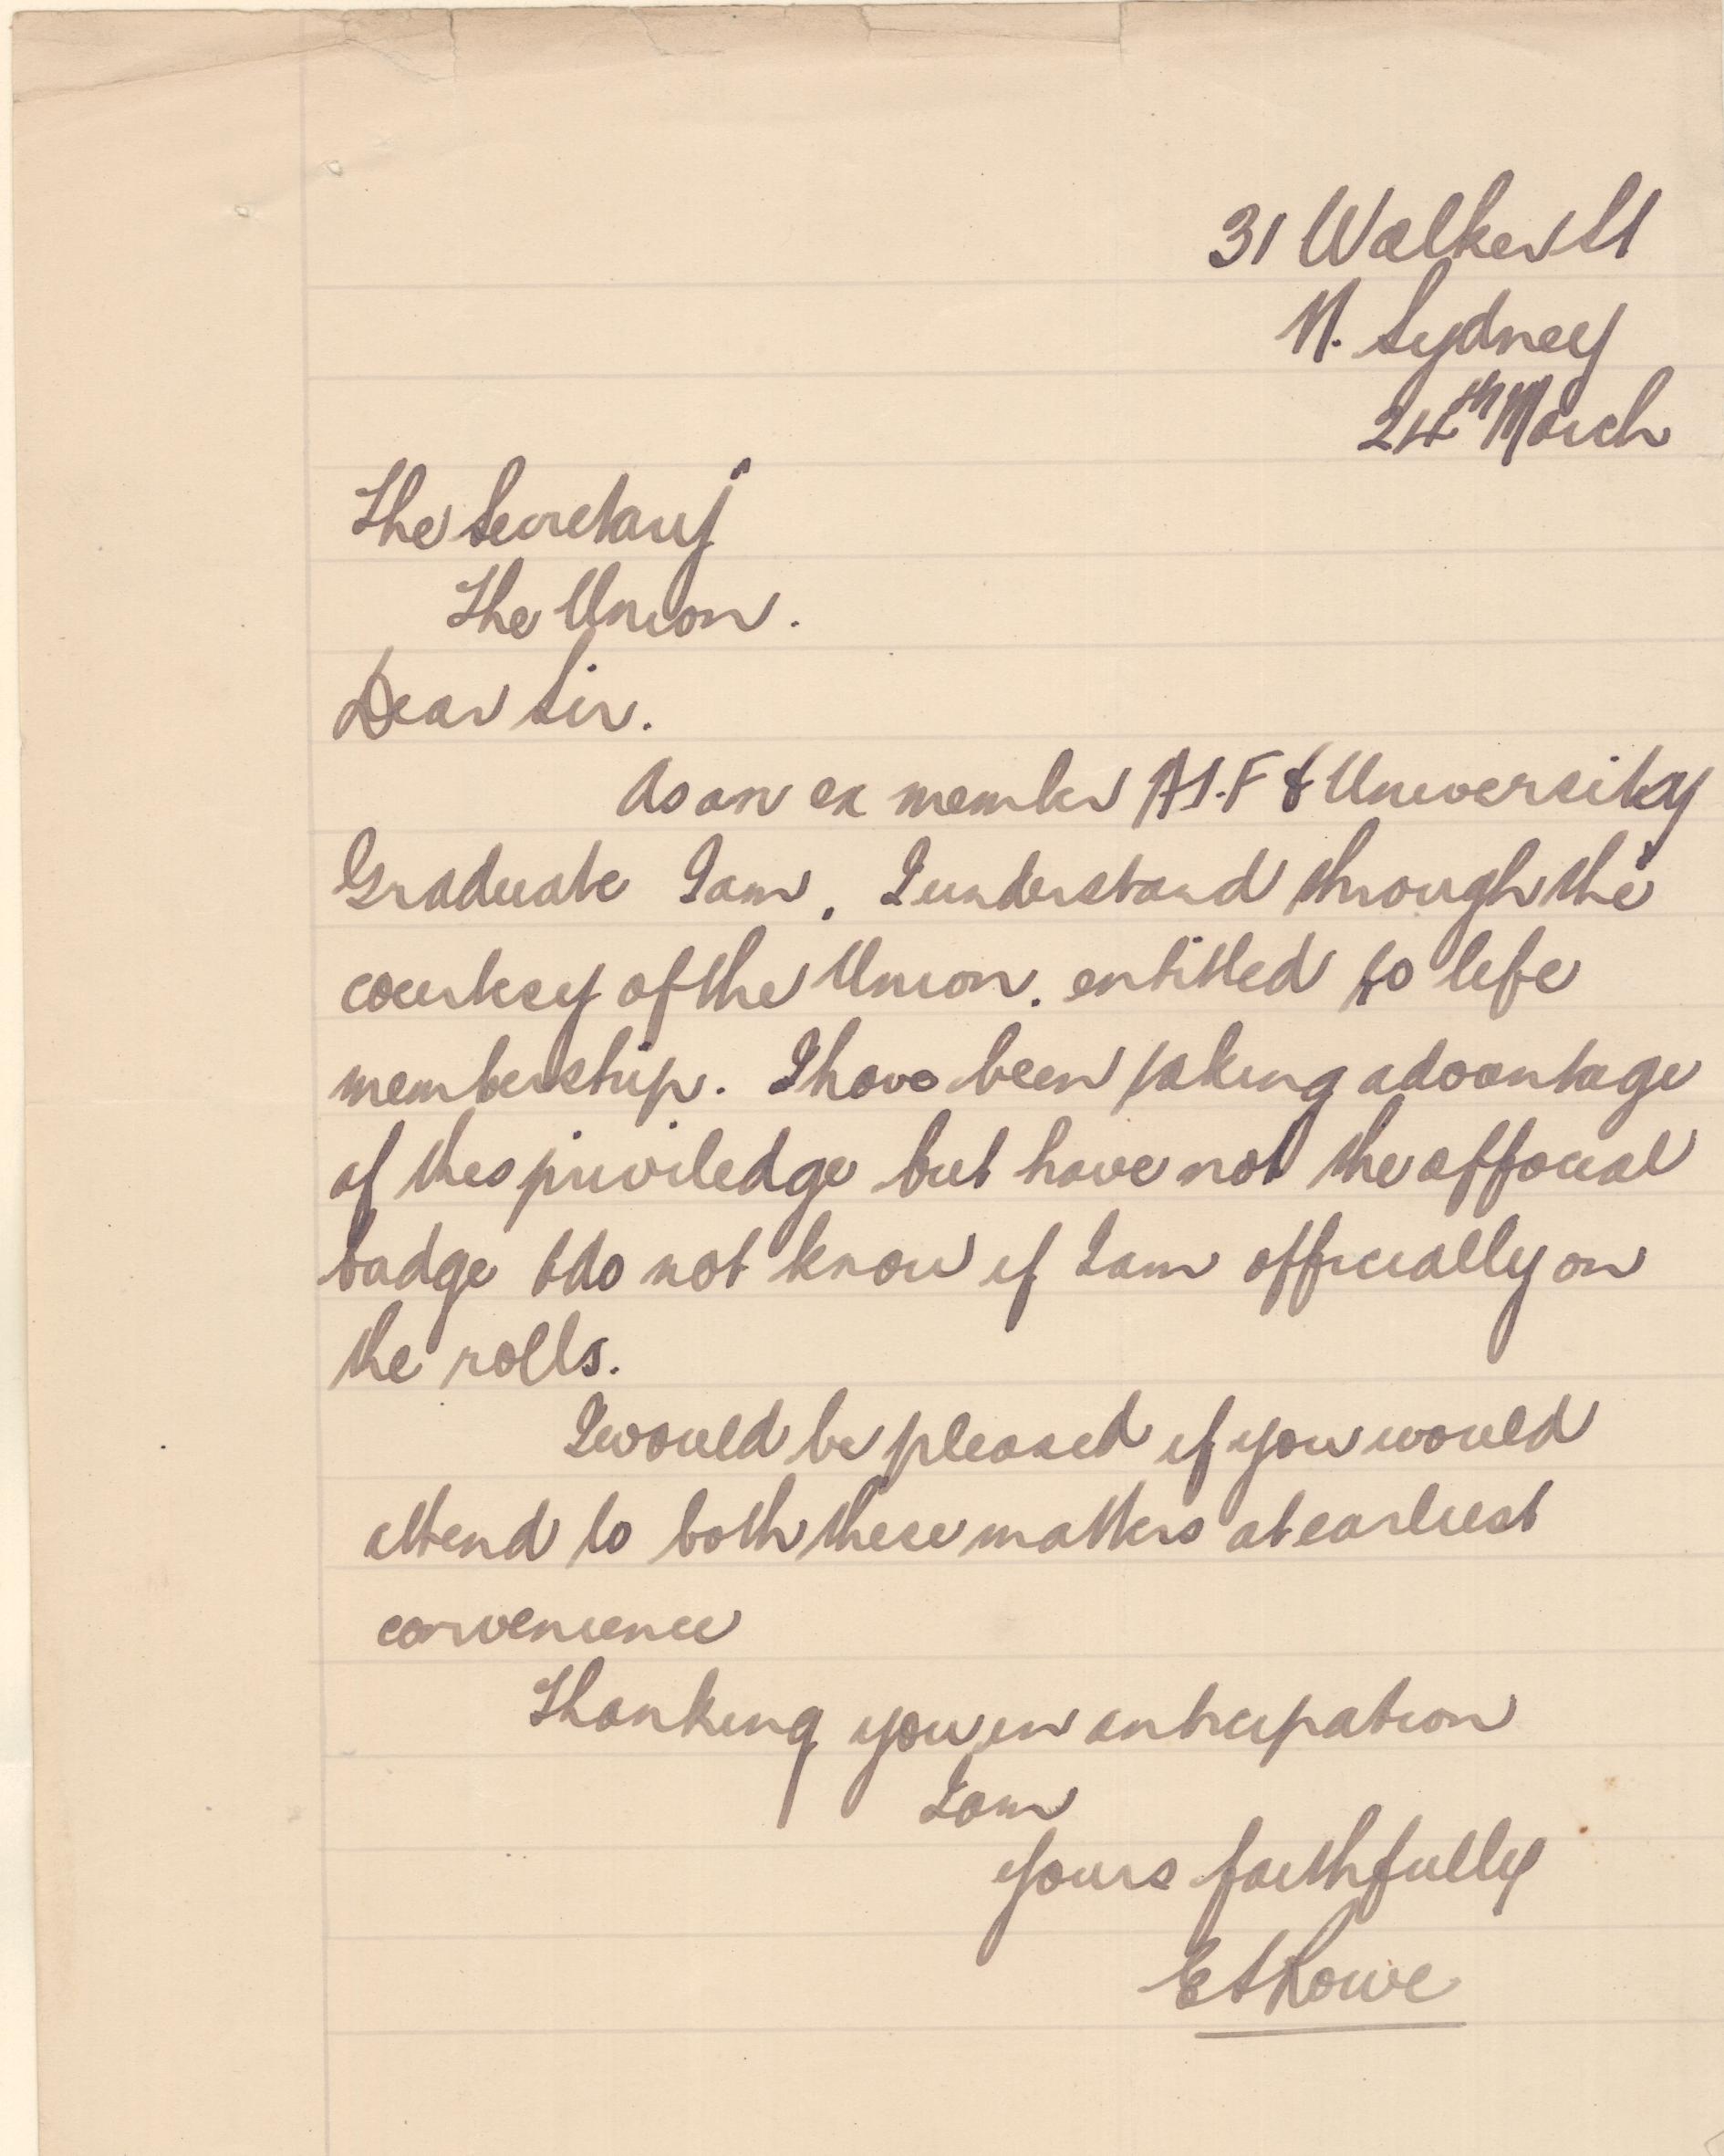 31 Walker St
N. Sydney
24th March
The Secretary
The Union.
Dear Sir.
As an ex member A.I.F & University
Graduate I am, I understand through the
courtesy of the Union, entitled to life
membership. I have been taking advantage
of this priviledge but have not the official
badge & do not know if I am officially on
the rolls.
I would be pleased if you would
attend to both these matters at earliest
convenience
Thanking you in anticipation
I am
Yours faithfully
E S Rowe